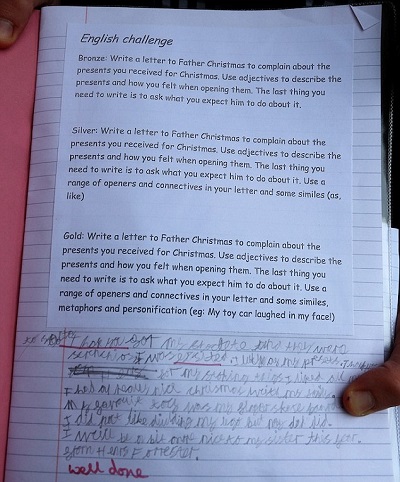 English challenge
Bronze: Write a letter to Father Christmas to complain about the
presents you received for Christmas. Use adjectives to describe the
presents and how you felt when opening them. The last thing you
need to write is to ask what you expect him to do about it.
Silver: Write a letter to Father Christmas to complain about the
presents you received for Christmas. Use adjectives to describe the
presents and how you felt when opening them. The last thing you
need to write is to ask what you expect him to do about it. Use a
range of openers and connectives in your letter and some similes (as,
like)
Gold: Write a letter to Father Christmas to complain about the
presents you received for Christmas. Use adjectives to describe the
presents and how you felt when opening them. The last thing you
need to write is to ask what you expect him to do about it. Use a
range of openers and connectives in your letter and some similes,
metaphors and personification (eg: My toy car laughed in my face!)
my and they were
I my
for my stocking things I liked all
I had a really nice christmas with my
my was my
I did not like my but my dad did.
I will be a bit more nice to my sister this year.
from Henry Forrester.
well done